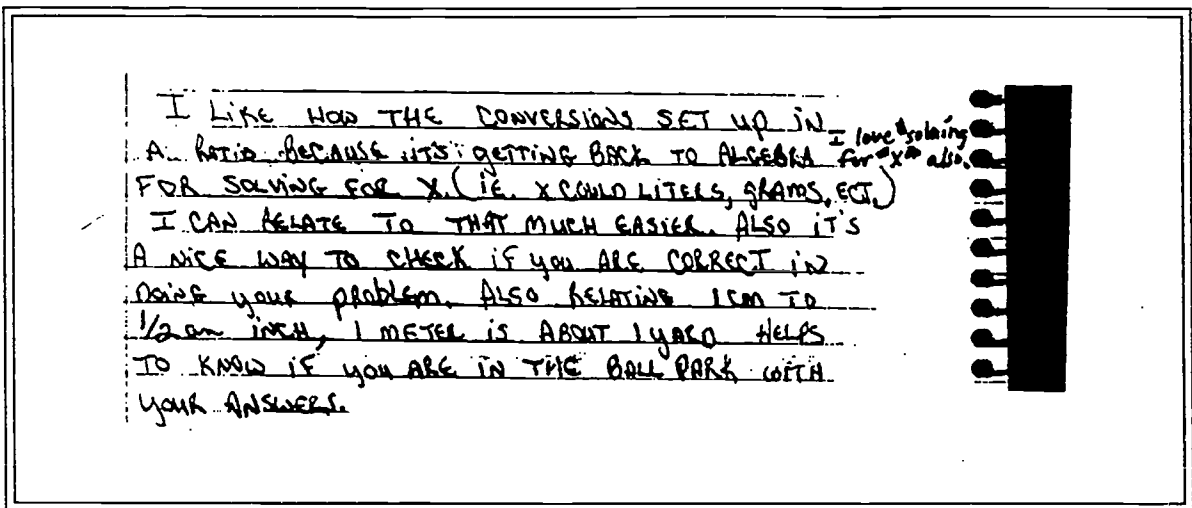 I LIKE HOW THE CONVERSIONS SET UP IN
A RATIO BECAUSE IT'S GETTING BACK TO ALGEBRA
I love "solving
for "X" also.
FOR SOLVING FOR X. (IE. X COULD LITERS, GRAMS, ECT.)
I CAN RELATE TO THAT MUCH EASIER. ALSO IT'S
A NICE WAY TO CHECK IF YOU ARE CORRECT IN
DOING YOUR PROBLEM. ALSO RELATING 1CM TO
1/2 an INCH, 1 METER IS ABOUT 1 YARD HELPS
TO KNOW IF YOU ARE IN THE BALL PARK WITH
YOUR ANSWERS.